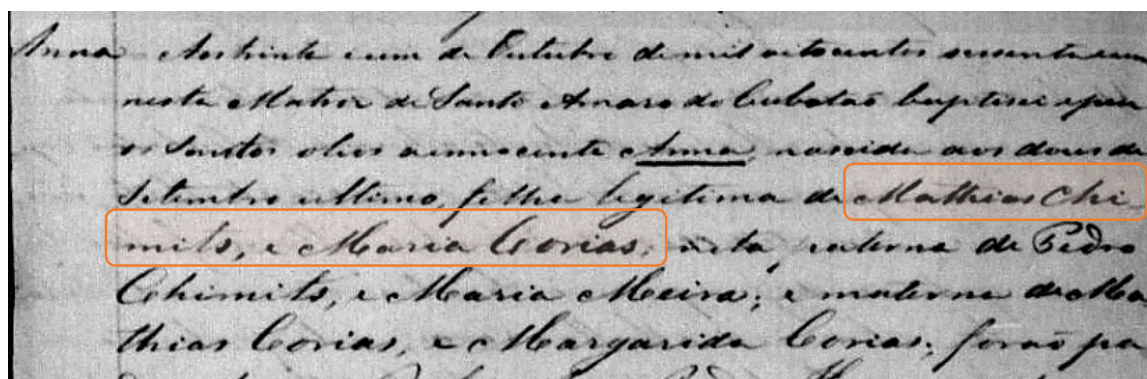 Anna Aos trinta e um de Outubro de mil oitocentos sessenta e um
nesta Matriz de Santo Amaro do Cubatão baptisei e puz
os Santos olios a innocente Anna, nascida aos dous de
Setembro ultimo, filha legitima de Mathias Chi-
mits, e Maria Corias, neta paterna de Pedro
Chimits, e Maria Meira; e materna de Ma
thias Corias, e Margarida Corias; forão pa